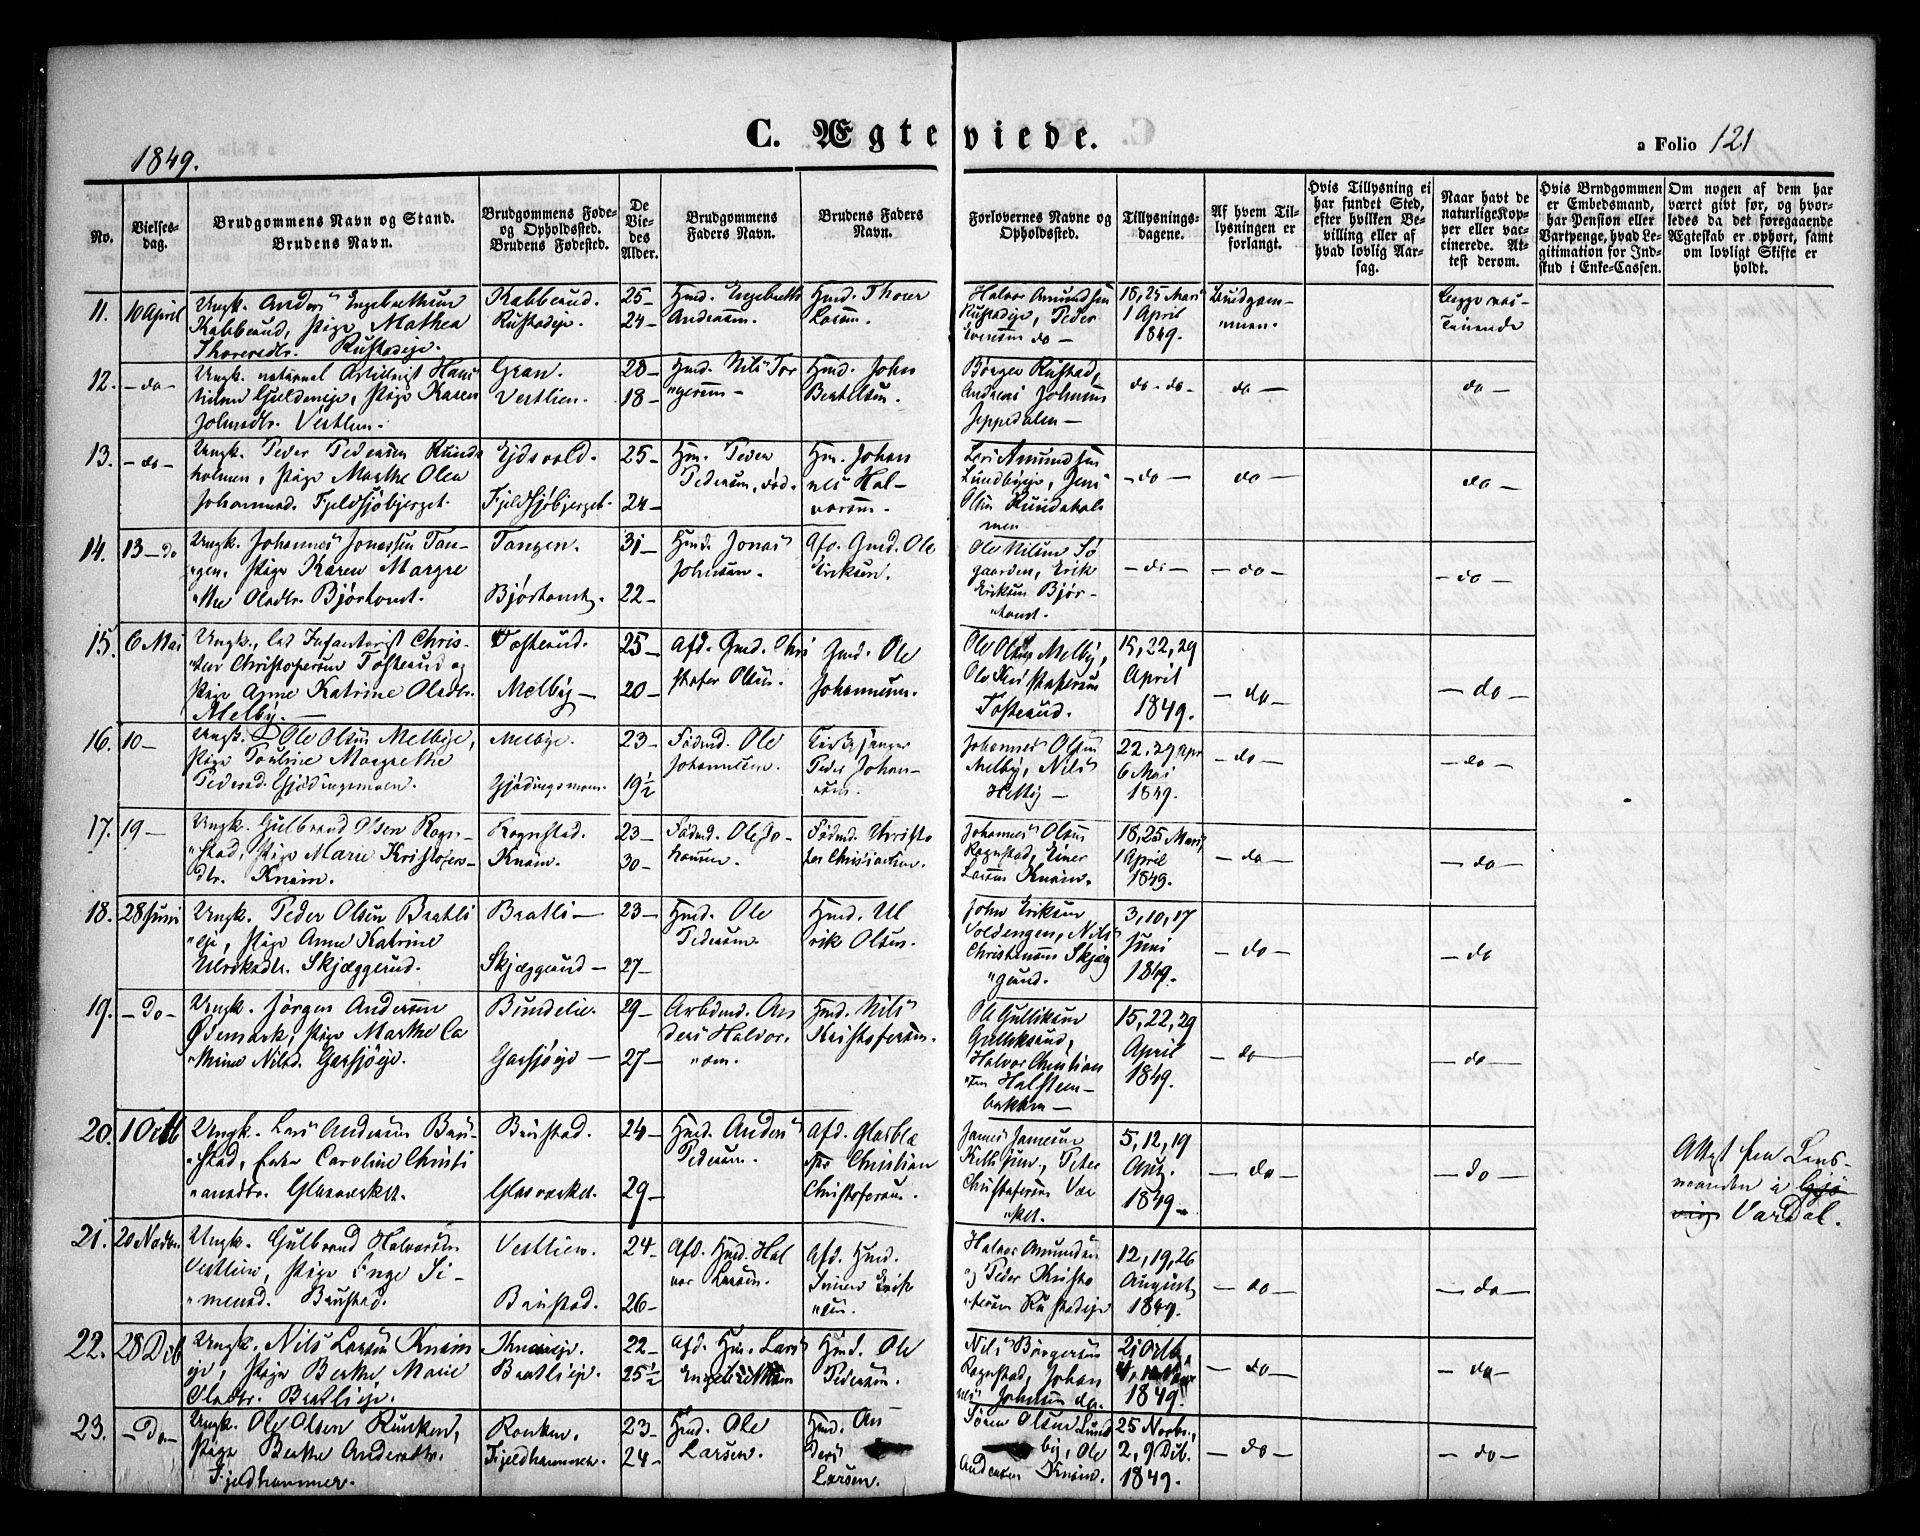 C. Ægteviede.
1849.
a Folio 121
No.
Vielses-
dag.
Brudgommens Navn og Stand.
Brudens Navn.
Brudgommens Føde-
og Opholdssted.
Brudens Fødested.
De
Vie-
des
Alder.
Brudgommens
Faders Navn.
Brudens Faders
Navn.
Forlovernes Navne og
Opholdssted.
Tillysnings-
dagene.
Af hvem Til-
lysningen er
forlangt.
Hvis Tillysning ei
har fundet Sted,
efter hvilken Be-
villing eller af
hvad lovlig Aar-
sag.
Naar havt de
naturlige Kop-
per eller vac-
cinerede. At-
test derom.
Hvis Brudgommen
er Embedsmand,
har Pension eller
Vartpenge, hvad Le-
gitimation for Ind-
skud i Enke-Cassen.
Om nogen af dem har
været gift før, og hvor-
ledes da det foregaaende
Ægteskab er ophørt, samt
om lovligt Skifte er
holdt.
11. 10 April
Ungk. Anders Engebrethsen
Kabberud, Pige Mathea
Thoresdtr. Rustadeje.
Kabberud.
Rustadeje.
25-
24-
Hmd. Engebreth
Andersen.
Hmd. Thorer
Larsen.
Halvor Amundsen
Rustadeje, Peder
Iversen do -
18, 25 Marts
1 April
1849.
Brudgom-
men.
Begge vac-
cinerede
12. - do -
Ungk. natural Artillerist Hans
Pige Karen
Johnsdtr. Vestlien.
Gran.
Vestlien.
28-
18-
Hmd. Nils Tor
"gersen -
Hmd. John
Bertelsen.
Børger Rustad,
Andreas Johnsen
Jeppedalen -
do - do -
do -
do -
13. - do -
Ungk. Peder Pedersen Runds
holmen, Pige Marthe Olea
Johannesd. Fjeldsjøbjerget.
Ejdsvold.
Fjeldsjøbjerget.
25-
24-
Hm. Peder
Pedersen, død.
Hm. Johan
nes Hal-
vorsen.
Lars Amundsen
Lundbyeje, Jens
Olsen Rundshol
men
- do -
do -
do -
14. 13 - do
Ungk. Johannes Jonassen Tan-
gen, Pige Karen Margre
"the Olsdtr. Bjørtomt.
Tangen.
Bjørtomt.
31-
22-
Hmd. Jonas
Johnsen.
Afd. Gmd. Ole
Eriksen.
Ole Nilsen Sø
gaarden, Erik
Eriksen Bjør-
"tomt.
- do -
- do -
- do -
15. 6 Mai
Ungk., led. Infanterist Chris-
Christofersen Tosterud og
Pige Anne Katrine Olsdtr.
Melby. -
Tosterud.
Melby -
25-
20-
Afd. Gmd. Chri
stofer Olsen.
Gmd. Ole
Johannesen.
Ole Olsen Melby,
Ole Kristofersen
Tosterud.
15, 22, 29
April
1849.
- do -
- do -
16. 10 -
Ungk. Ole Olsen Melbye,
Pige Pauline Margrethe
Pedersd. Gjødingsmoen.
Melbye.
Gjødingsmoen.
23-
19½
Fødmd. Ole
Johannesen.
Kirkesanger
Peder Johan-
sen.
Johannes Olsen
Melby, Nils
Melby -
22, 29 Apr
6 Mai
1849.
- do -
- do -
17. 19 -
Ungk. Gulbrand Olsen Rogn-
"stad, Pige Maren Kristofers-
dtr. Knain.
Rognstad.
Knain.
23-
30-
Fødmd. Ole Jo-
hannesen.
Fødmd. Christo
fer Christiansen.
Johannes Olsen
Rognstad, Einer
Larsen Knain.
18, 25 Marts,
1 April
1849.
- do -
- do -
18. 28 Juni
Ungk. Peder Olsen Bratli
"eje, Pige Anne Katrine
Ulriksdtr. Skjæggerud.
Bratli -
Skjæggerud -
23-
27-
Hmd. Ole
Pedersen.
Hmd. Ul
rik Olsen.
John Eriksen
Soldengen, Nils
Christensen Skjæg
"gerud.
3, 10, 17
Juni
1849.
- do -
- do
19. - Do -
Ungk. Jørgen Andersen
Ødemark, Pige Marthe Ca
"thrine Nilsd. Garsjøeje.
Bundelie.
Garsjøeje -
29-
27-
Arbdmd. An
ders Halvor.
"sen.
Hmd. Nils
Kristofersen.
Ole Gulliksen
Gulliksrud,
Halvor Christian
"sen Halsten-
bakken -
15, 22, 29
April
1849.
- do -
- do -
20. 1 Octb
Ungk. Lars Andersen Bru-
"stad, Enke Caroline Christi
"ansdtr. Glasværket.
Brustad.
Glasværket.
24-
29-
Hmd. Anders
Pedersen.
Afd. Glasblæ
ser Christian
Christofersen.
James Jamesen
Peter
Christofersen Vær
"ket.
5, 12, 19
Aug.
1849 -
- do
- do
Attest fra Lens-
manden i Gjø
vig Vardal.
21. 20 Novbr.
Ungk. Gulbrand Halvorsen
Vestlien, Pige Inge Si-
"mensd. Brustad.
Vestlien.
Brustad.
24-
26-
Afd. Hmd. Hal
vor Larsen.
Afd. Hmd.
Simen Erik
"sen.
Halvor Amundsen
og Peder Kristo
"fersen Rustadeje
12, 19, 26
August
1849.
- do -
- do -
22. 28 Dcb
Ungk. Nils Larsen Knain
eje, Pige Berthe Marie
Olsdtr. Bratlieje.
Knaineje.
Bratlieje.
22-
25½
Afd. Hm. Lars
Engebretsen
Hmd. Ole
Pedersen.
Nils Børgersen
Rognstad, Johan
nes Johnsen do.
21 Octb,
1849.
- do -
- do -
23. - Do -
Ungk. Ole Olsen Runken,
Pige Berthe Andersdtr.
Fjeldhammer.
Ronken.
Fjeldhammer.
23-
24-
Hmd. Ole
Larsen.
Hmd. An
ders
Larsen.
Søren Olsen Lund
by, Ole
Andersen Knain.
25 Novbr.,
2, 9 Dcb.
1849.
- do -
- do -